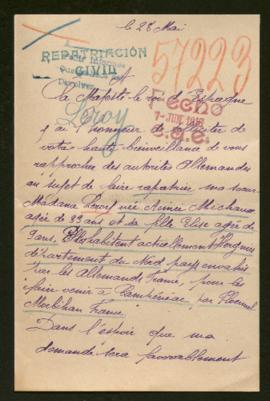 le 28 Mai
57223
REPATRIACIÓN
CIVIL
Leroy
Fecho
7-JUN 1917
Sa Majesté le roi d'Espagne
j'ai l'honneur de solliciter de
votre haute bienveillance de vous
rapprocher des autorités Allemandes
au sujet de faire rapatrier ma sœur
Madame Leroy née Aimée Michaux
agée de 33 ans et sa fille Elise agée de
9 ans. Elles habitent actuellement
département du Nord pays envahis
par les Allemands France, pour les
faire venir à par
Morbihan France
Dans l'espoir que ma
demande sera favorablement